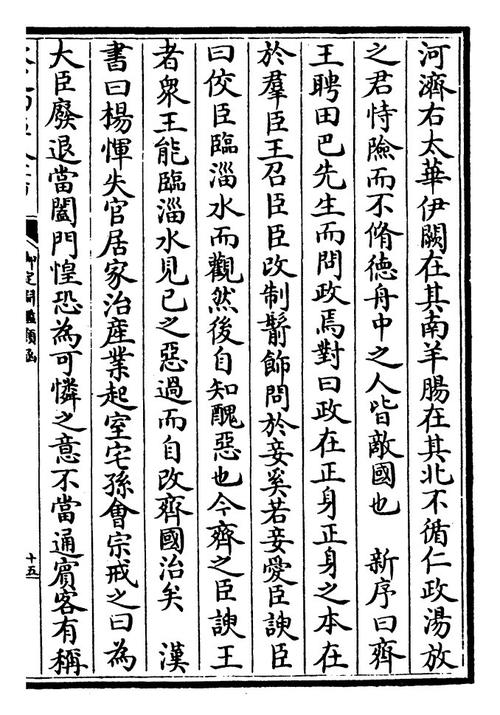 河濟右太華伊闕在其南羊腸在其北不循仁政湯放
之君恃險而不脩德舟中之人皆敵國也　新序曰齊
王聘田巴先生而問政焉對曰政在正身正身之本在
於羣臣王召臣臣改制鬋飾問於妾奚若妾愛臣諛臣
曰佼臣臨淄水而觀然後自知醜惡也今齊之臣諛王
者衆王能臨淄水見己之惡過而自改齊國治矣　漢
書曰楊惲失官居家治産業起室宅孫會宗戒之曰為
大臣廢退當闔門惶恐為可憐之意不當通賓客有稱
御定淵鑑類函
十五